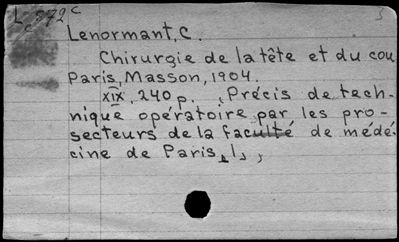 Lenormant, C.
Chirurgie de la tête et du cou
Paris, Masson, 1904.
xix, 240 p. (Précis de tech-
nique opératoire par les pro-
secteurs de la faculté de médé-
cine de Paris, 1,)